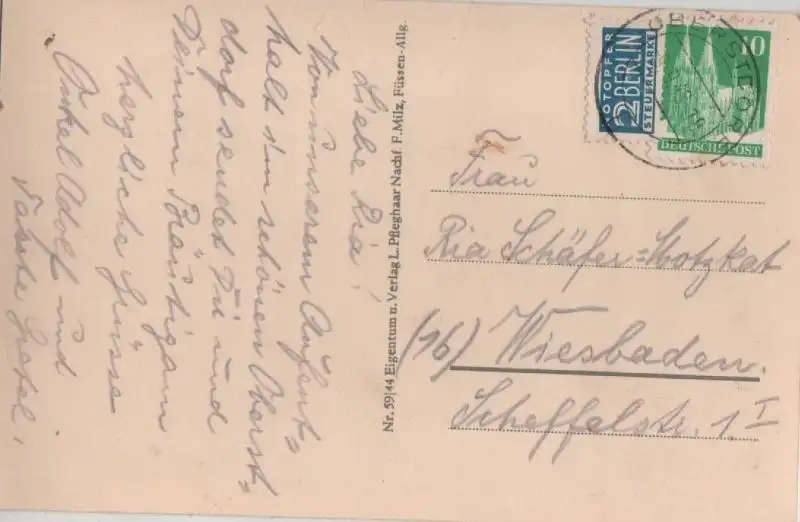 Liebe Ria!
Von unserem Aufent=
halt im schönen Oberst=
dorf sendet Dir und
Deinem Bräutigam
herzliche Grüsse
Onkel Adolf und
Tante Gretel.
Nr. 59/44 Eigentum u. Verlag L. Pfleghaar Nachf. F. Milz, Füssen-Allg.
NOTOPFER
2 BERLIN
STEUERMARKE
10
DEUTSCHE POST
OBERSTDORF
Frau
Ria Schäfer=Motzkat
(16) Wiesbaden.
Scheffelstr. 1. I